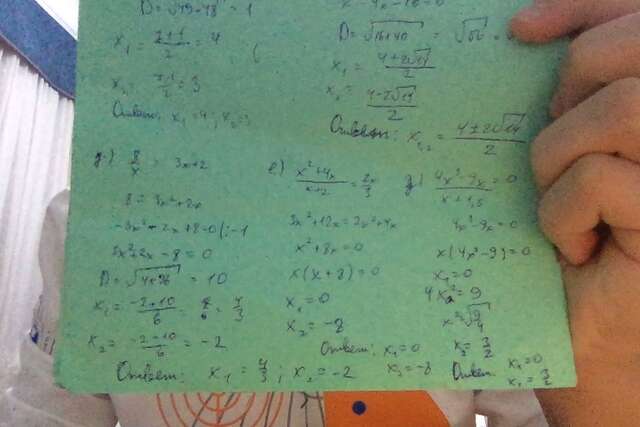 D = √49-48 = 1
x₁ = (7+1)/2 = 4
x₂ = (7-1)/2 = 3
Ответ: x₁=4; x₂=3
D = √16+40 = √56
x₁ = (4+2√14)/2
x₂ = (4-2√14)/2
Ответ: x₁,₂ = (4±2√14)/2
8/x = 3x+2
8 = 3x²+2x
-3x²-2x+8=0 |:-1
3x²+2x-8=0
D = √4+96 = 10
x₁ = (-2+10)/6 = 8/6 = 4/3
x₂ = (-2-10)/6 = -2
Ответ: x₁ = 4/3; x₂ = -2
е) (x²+4x)/(x+2) = 2x/3
3x²+12x = 2x²+4x
x²+8x=0
x(x+8)=0
x₁=0
x₂=-8
Ответ: x₁=0
x₂=-8
(4x³-9x)/(x+1,5) = 0
4x³-9x=0
x(4x²-9)=0
x₁=0
4x²=9
x=√9/4
x₂=3/2
Ответ: x₁=0
x₂=3/2